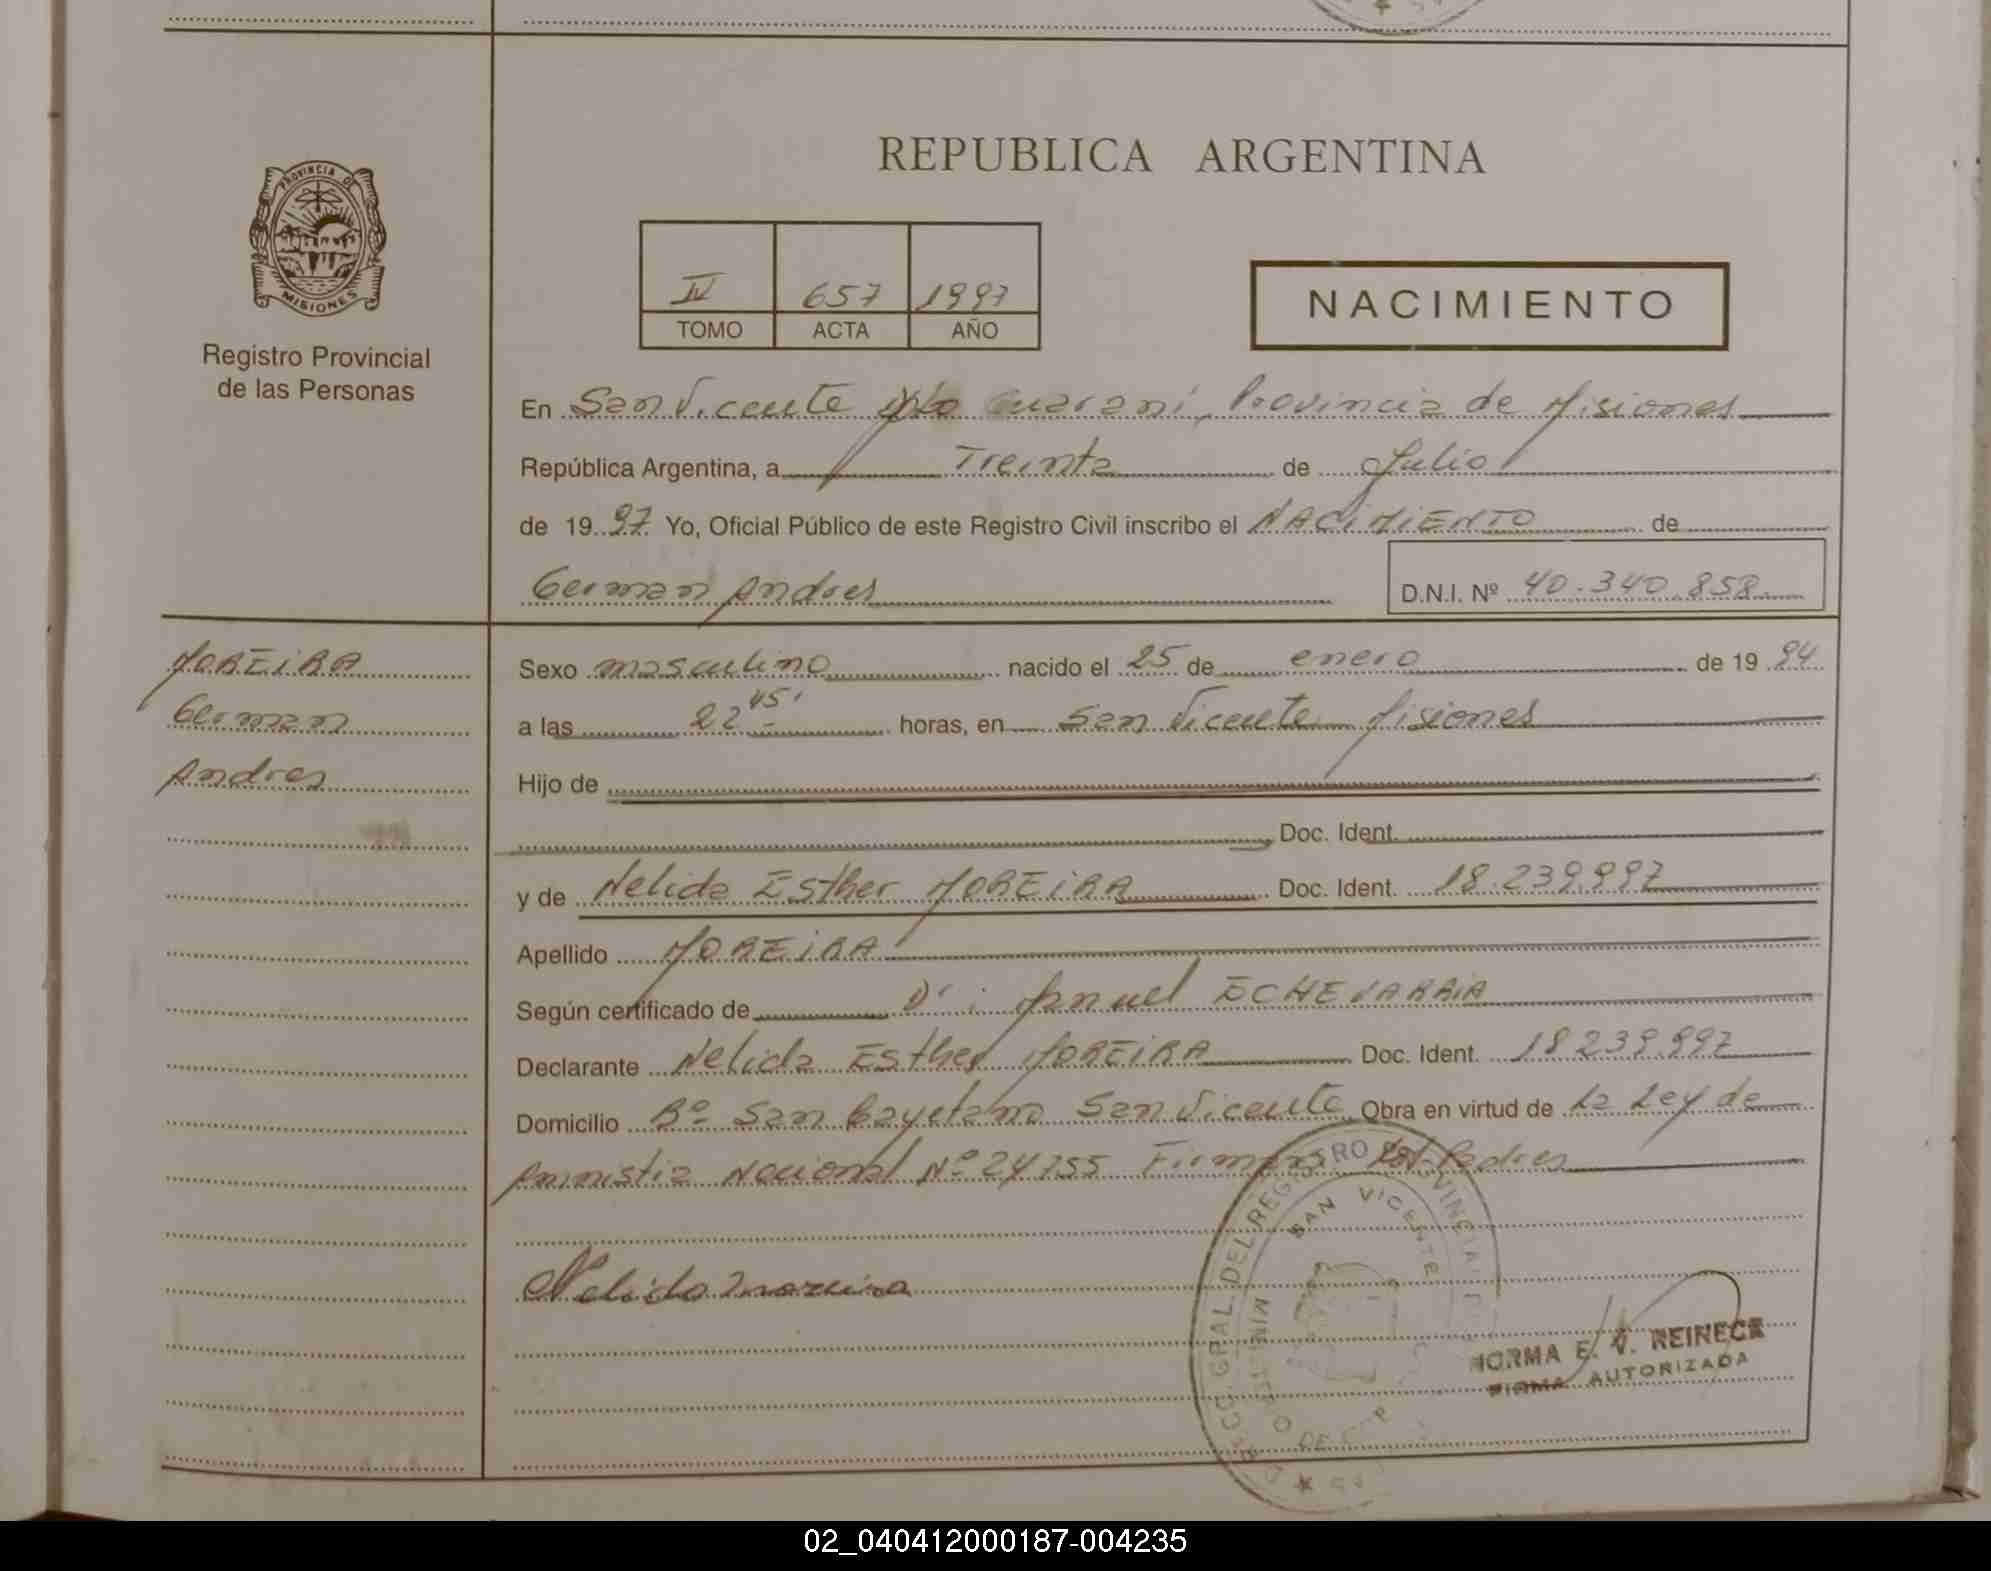 REPUBLICA ARGENTINA
PROVINCIA DE
MISIONES
Registro Provincial
de las Personas
IV 657 1997
TOMO ACTA AÑO
NACIMIENTO
En San Vicente Dpto Guarani, Provincia de Misiones
República Argentina, a Treinta de Julio
de 19 97 Yo, Oficial Público de este Registro Civil inscribo el NACIMIENTO de
German Andres D.N.I. Nº 40.340.858
MOREIRA
German
Andres
Sexo masculino nacido el 25 de enero de 19 94
a las 22 45' horas, en San Vicente Misiones
Hijo de
Doc. Ident.
y de Nelida Esther MOREIRA Doc. Ident. 18.239.997
Apellido MOREIRA
Según certificado de Dr: Manuel ECHEVARRIA
Declarante Nelida Esther MOREIRA Doc. Ident. 18239.997
Domicilio Bº San Cayetano San Vicente Obra en virtud de La Ley de
Amnistia Nacional Nº 24755 Firman Padres
Nelida Moreira
GRAL. DEL REGISTRO PROVINCIAL
SAN VICENTE
NORMA E. V. REINECK
FIRMA AUTORIZADA
02_040412000187-004235